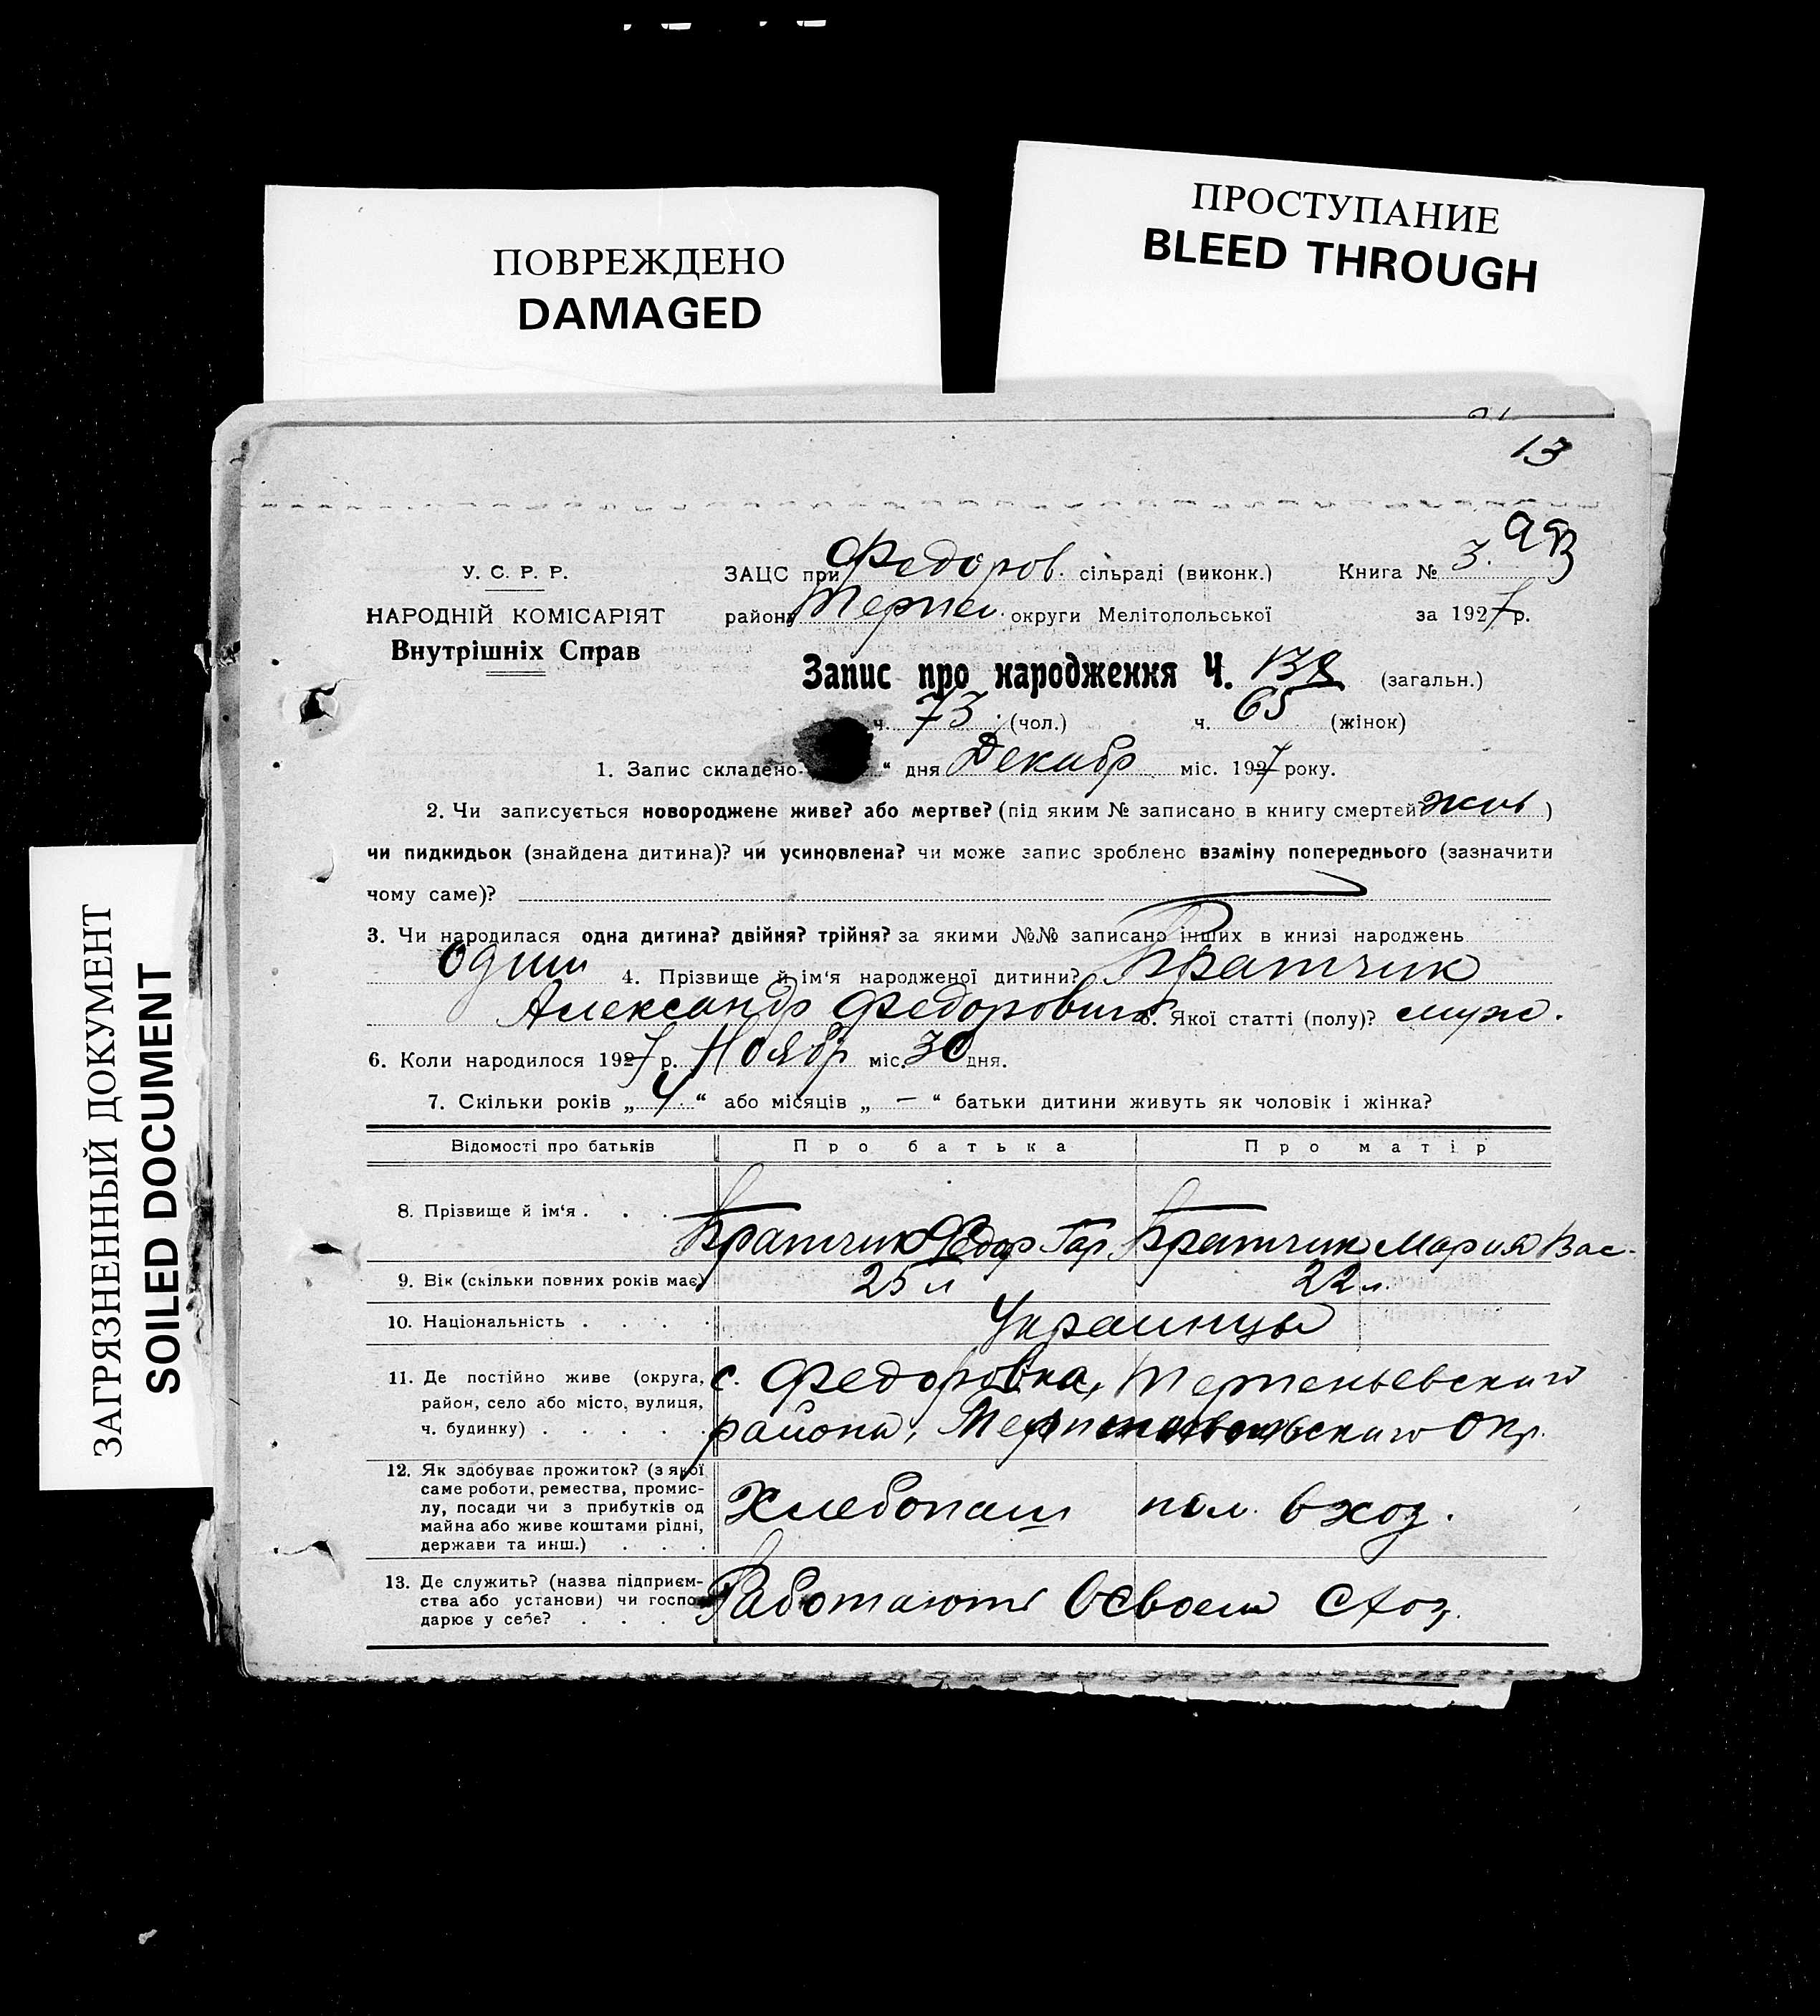 ПОВРЕЖДЕНО
DAMAGED
ПРОСТУПАНИЕ
BLEED THROUGH
ЗАГРЯЗНЕННЫЙ ДОКУМЕНТ
SOILED DOCUMENT
13
У. С. Р. Р.
НАРОДНІЙ КОМІСАРІЯТ
Внутрішніх Справ
ЗАЦС при Федоров. сільраді (виконк.) Книга № 3.
району Терпен. округи Мелітопольської за 1927 р.
Запис про народження Ч. 138 (загальн.)
ч. 73 (чол.) ч. 65 (жінок)
1. Запис складено „ “ дня Декабр міс. 1927 року.
2. Чи записується новороджене живе? або мертве? (під яким № записано в книгу смертей жив )
чи пидкидьок (знайдена дитина)? чи усиновлена? чи може запис зроблено взаміну попереднього (зазначити
чому саме)?
3. Чи народилася одна дитина? двійня? трійня? за якими №№ записано інших в книзі народжень
один 4. Прізвище й ім‘я народженої дитини? Братчик
Александр Федорович 5. Якої статті (полу)? муж.
6. Коли народилося 1927 р. Ноябр міс. 30 дня.
7. Скільки років „ 4 “ або місяців „ — “ батьки дитини живуть як чоловік і жінка?
Відомості про батьків Про батька Про матір
8. Прізвище й ім‘я . . . Братчик Федор Гар Братчик Мария Вас-
9. Вік (скільки повних років має) 25 л 22 л.
10. Національність . . . . Украинцы
11. Де постійно живе (округа, район, село або місто, вулиця, ч. будинку) . . . . . с. Федоровка, Терпеньевского
района, Мелитопольского Окр.
12. Як здобуває прожиток? (з якої саме роботи, ремества, промислу, посади чи з прибутків од майна або живе коштами рідні, держави та инш.) . . . Хлебопаш пом. в хоз.
13. Де служить? (назва підприємства або установи) чи господарює у себе? . . . Работают в своем с/хоз.